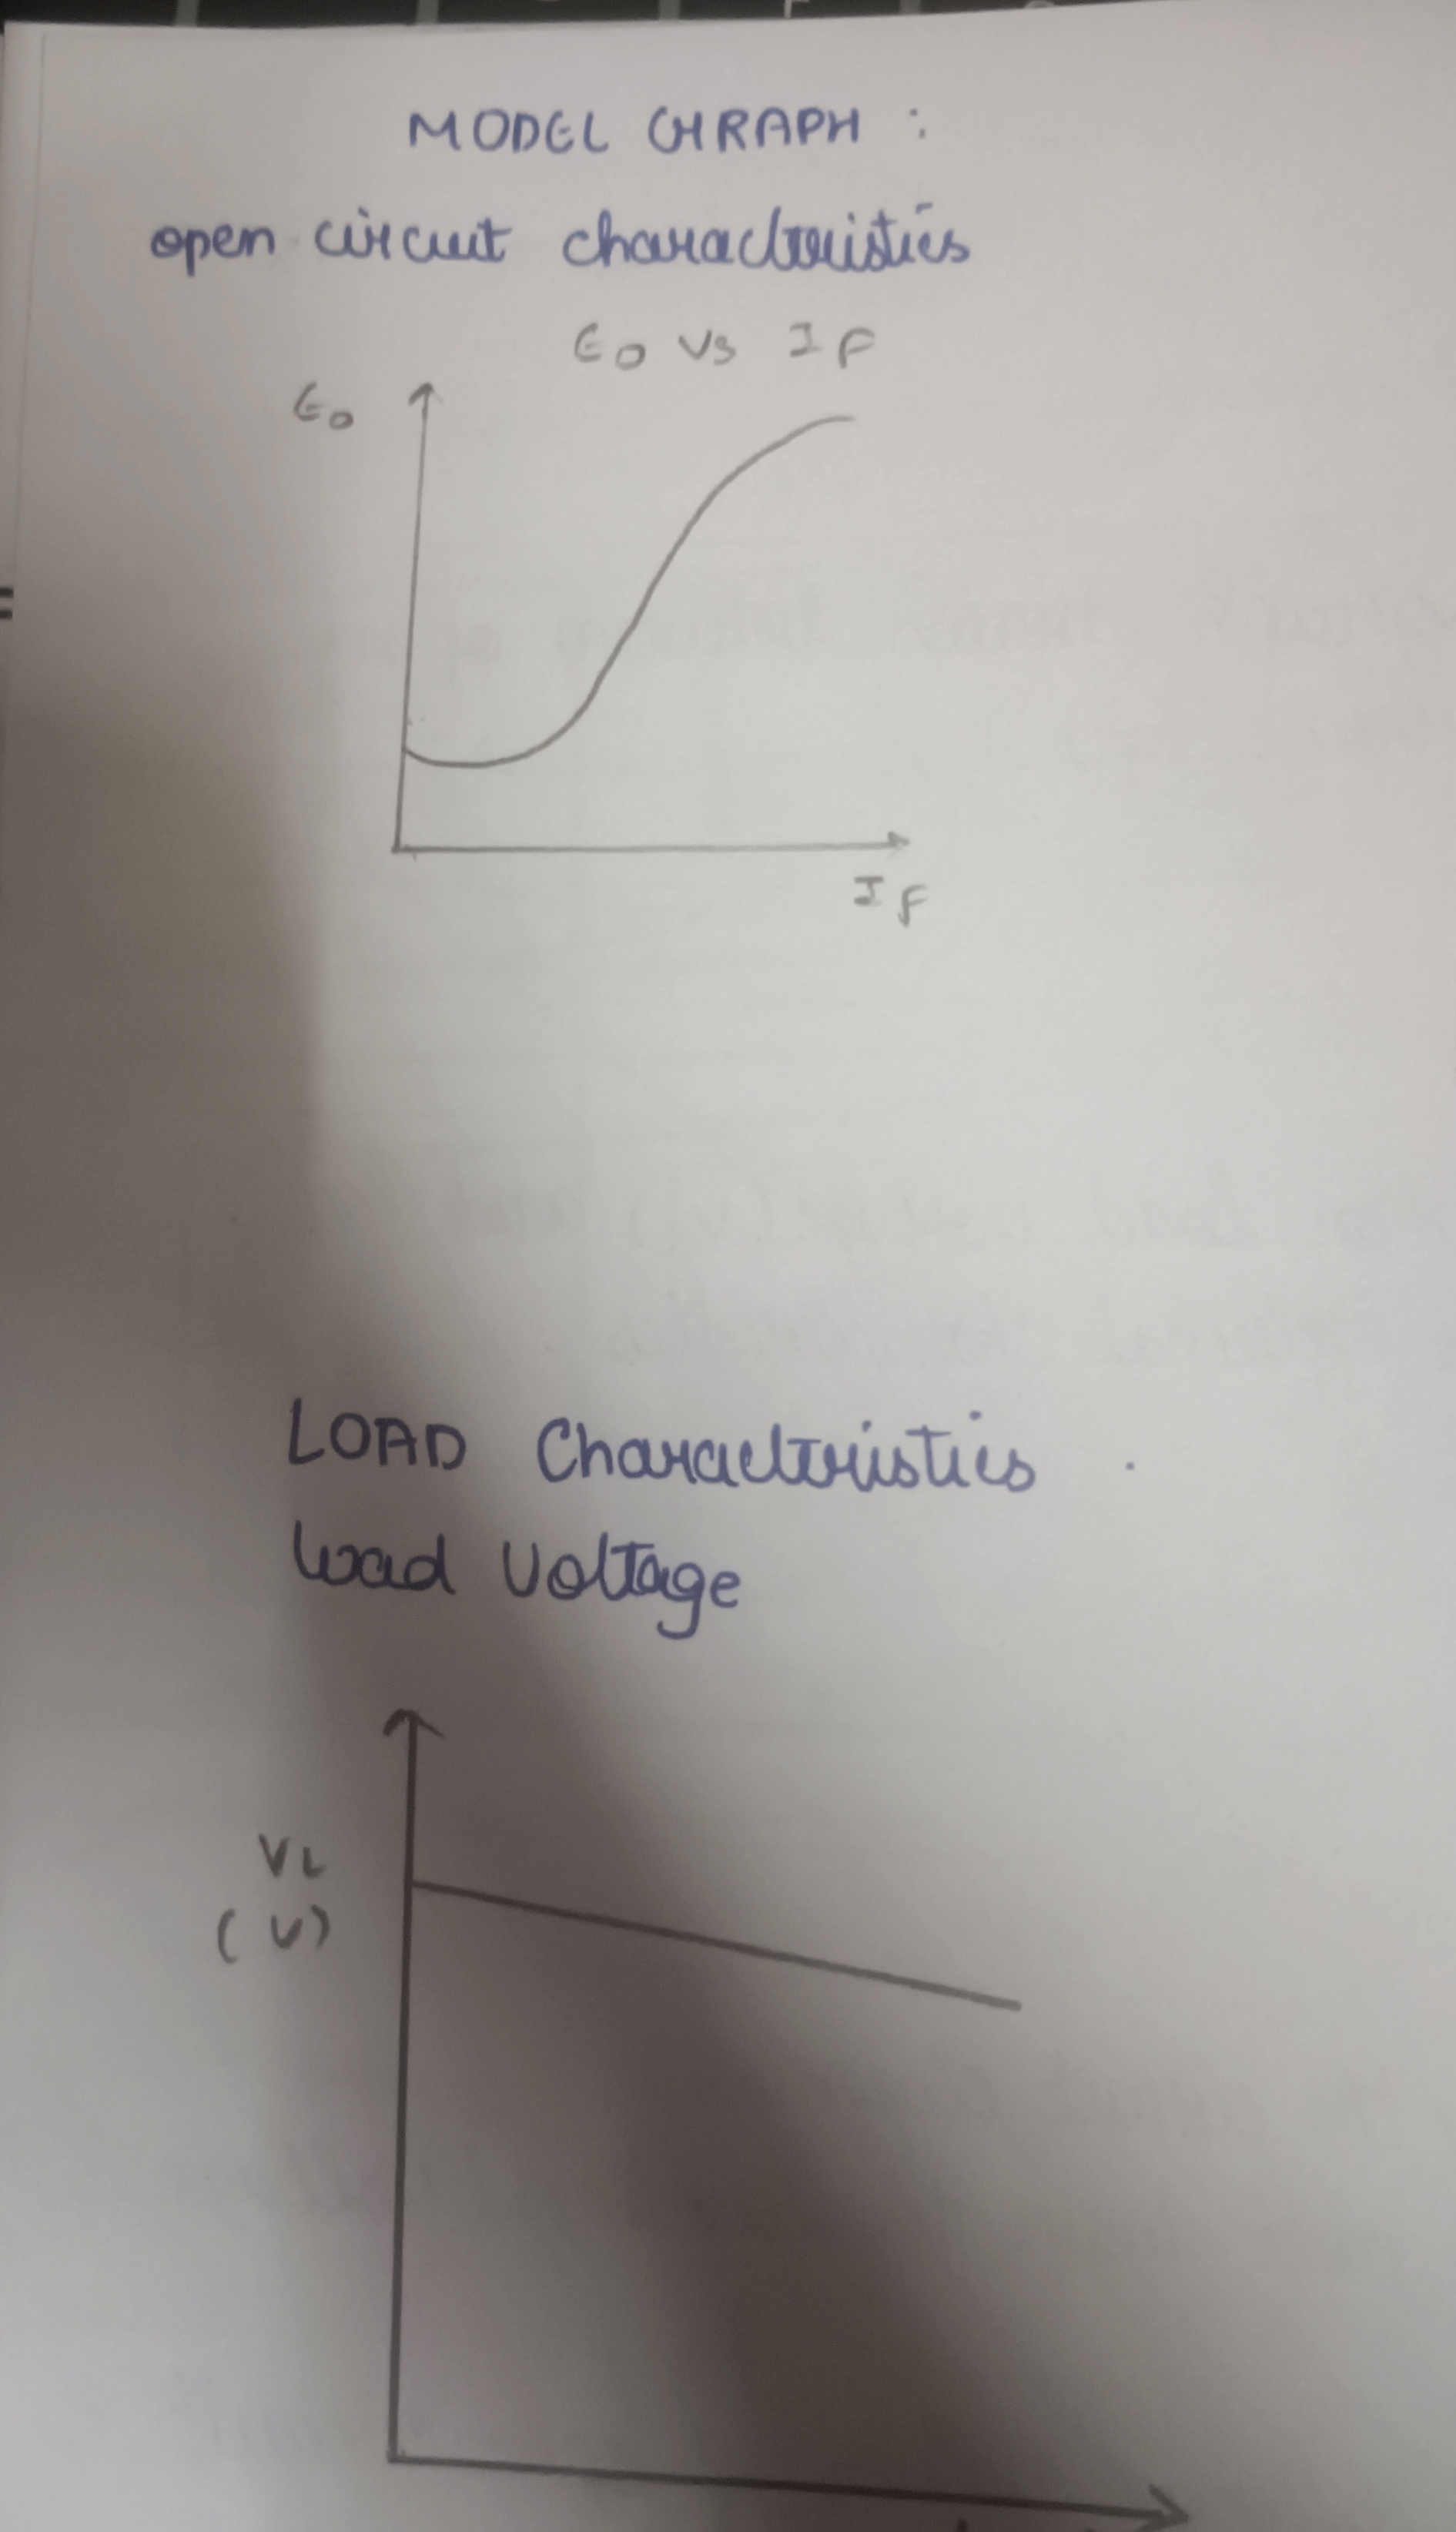 MODEL GRAPH :
open circuit characteristics
Eo Vs IF
Eo
IF
LOAD Characteristics .
load voltage
VL
(V)